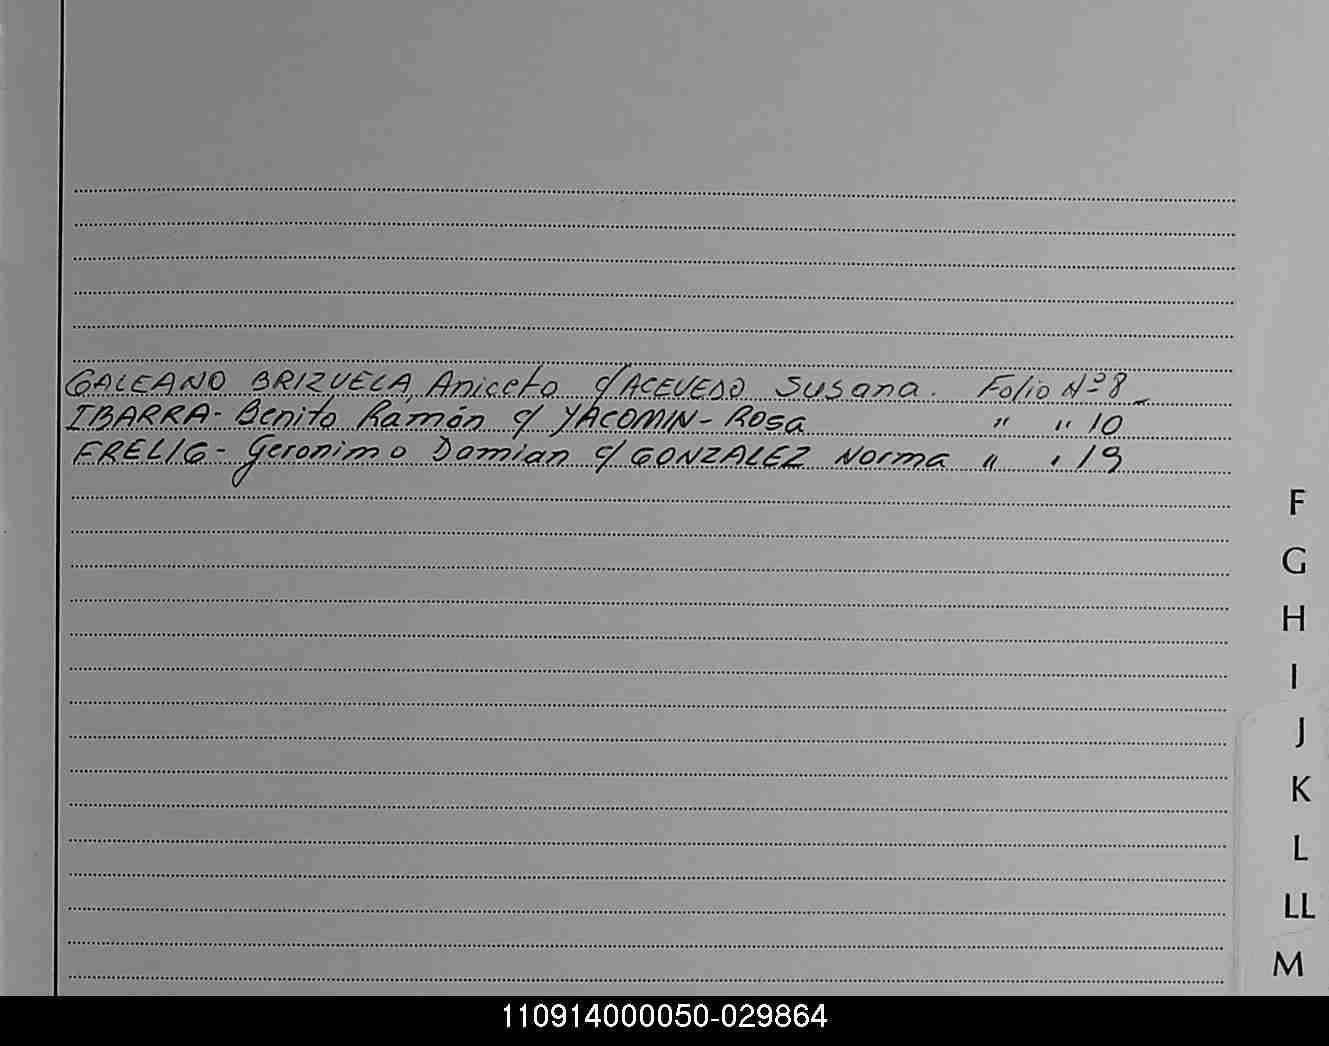 GALEANO BRIZUELA, Aniceto c/ ACEVEDO Susana. Folio Nº 8 -
IBARRA - Benito Ramón c/ YACOMIN - Rosa " " 10
FRELIG - Geronimo Damian c/ GONZALEZ Norma " " 19
F
G
H
I
J
K
L
LL
M
110914000050-029864